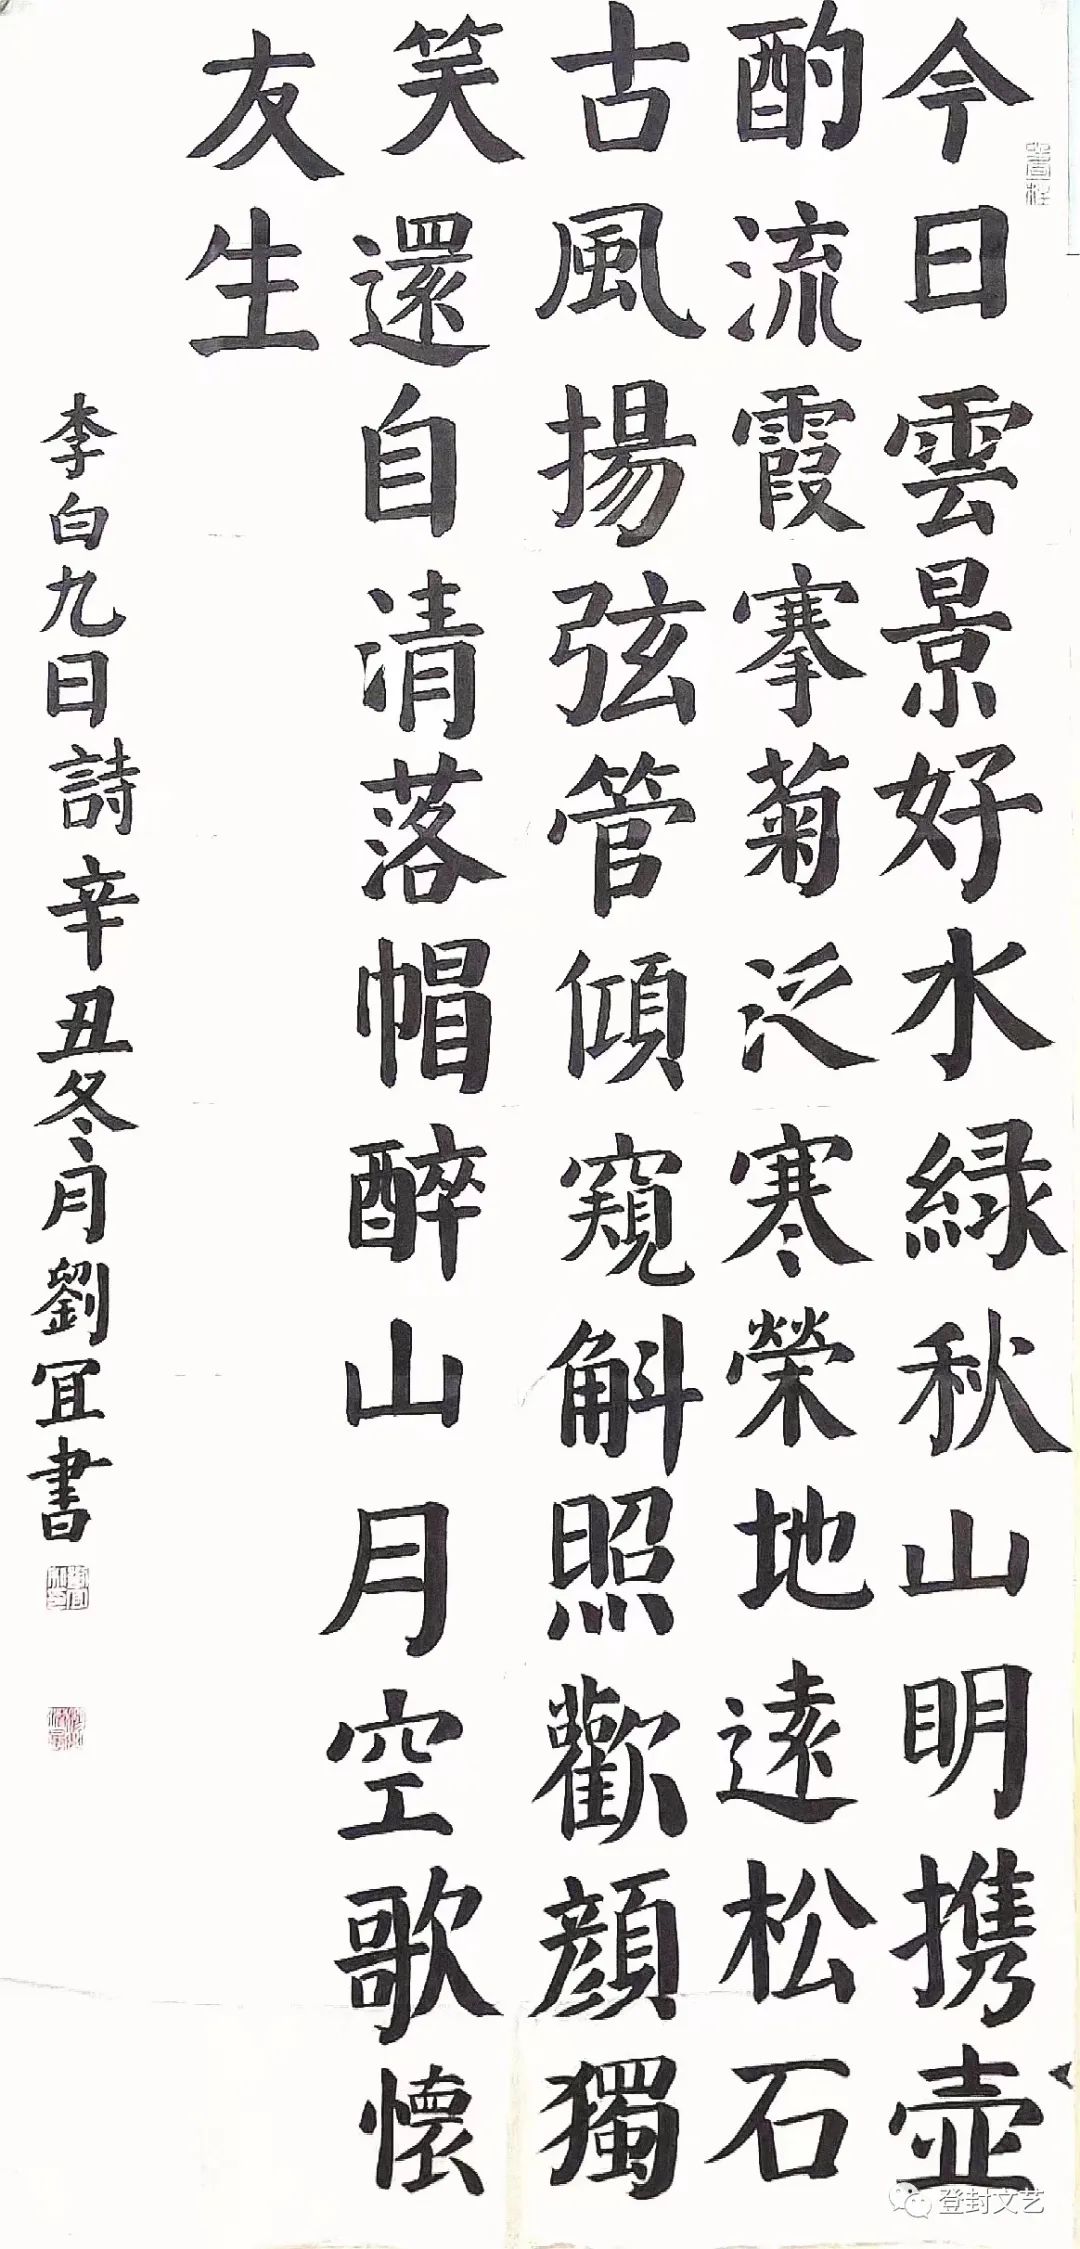 今日雲景好水緑秋山明携壺
酌流霞搴菊泛寒榮地遠松石
古風揚弦管傾窺斛照歡顔獨
笑還自清落帽醉山月空歌懷
友生
李白九日詩辛丑冬月劉冝書
登封文艺